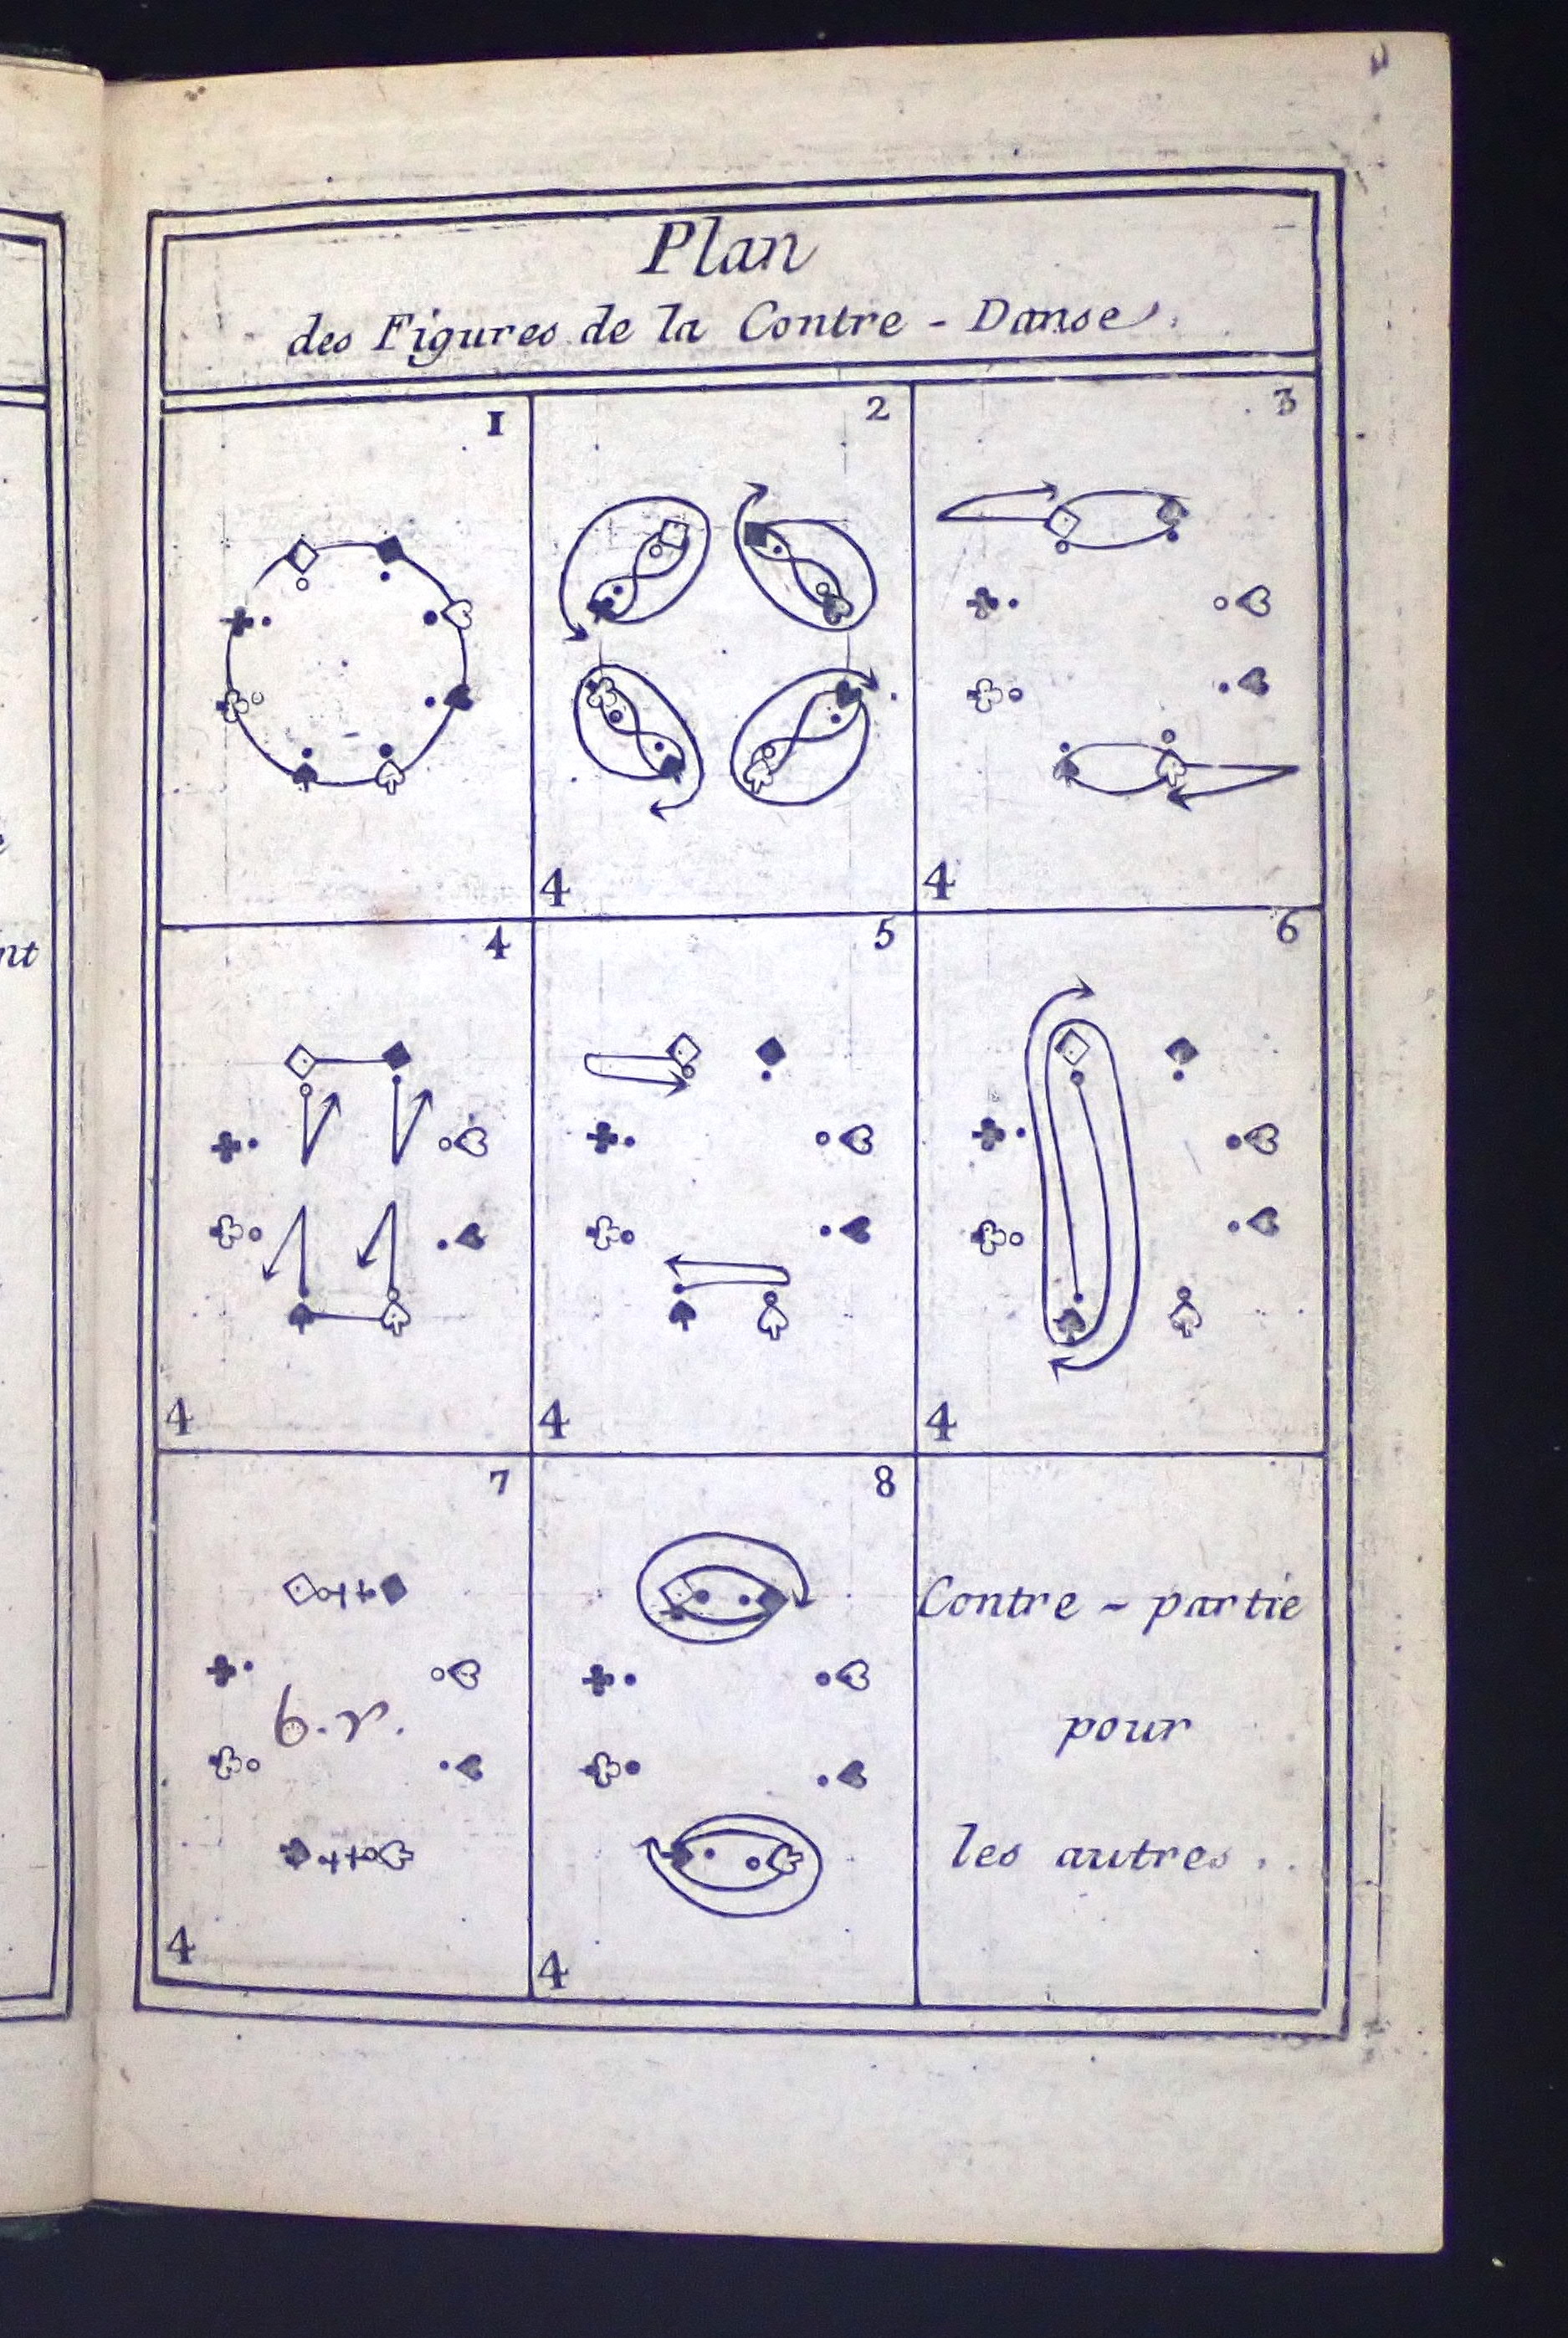 Plan
des Figures de la Contre - Danse.
1
2
3
4
4
4
5
6
4
4
4
7
8
6.r.
Contre - partie
pour
les autres..
4
4
nt